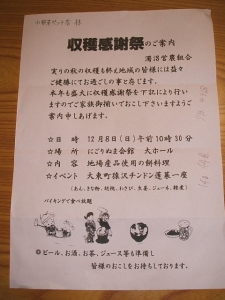 収穫感謝祭のご案内
濁沼営農組合
実りの秋の収穫も終え地域の皆様には益々
ご健勝にてお過ごしの事と存じます。
本年も盛大に収穫感謝祭を下記により行い
ますのでご家族御揃いでおこし下さいますようご
案内申しあげます。
☆日　時　12月8日(日)午前10時30分
☆場　所　にごりぬま会館　大ホール
☆内　容　地場産品使用の餅料理
☆イベント　大東町猿沢チンドン蓬莱一座
(あん、きな粉、胡桃、わさび、生姜、ジュール、雑煮)
バイキングで食べ放題
◎ビール、お酒、お茶、ジュース等も準備し
皆様のおこしをお待ちしております。